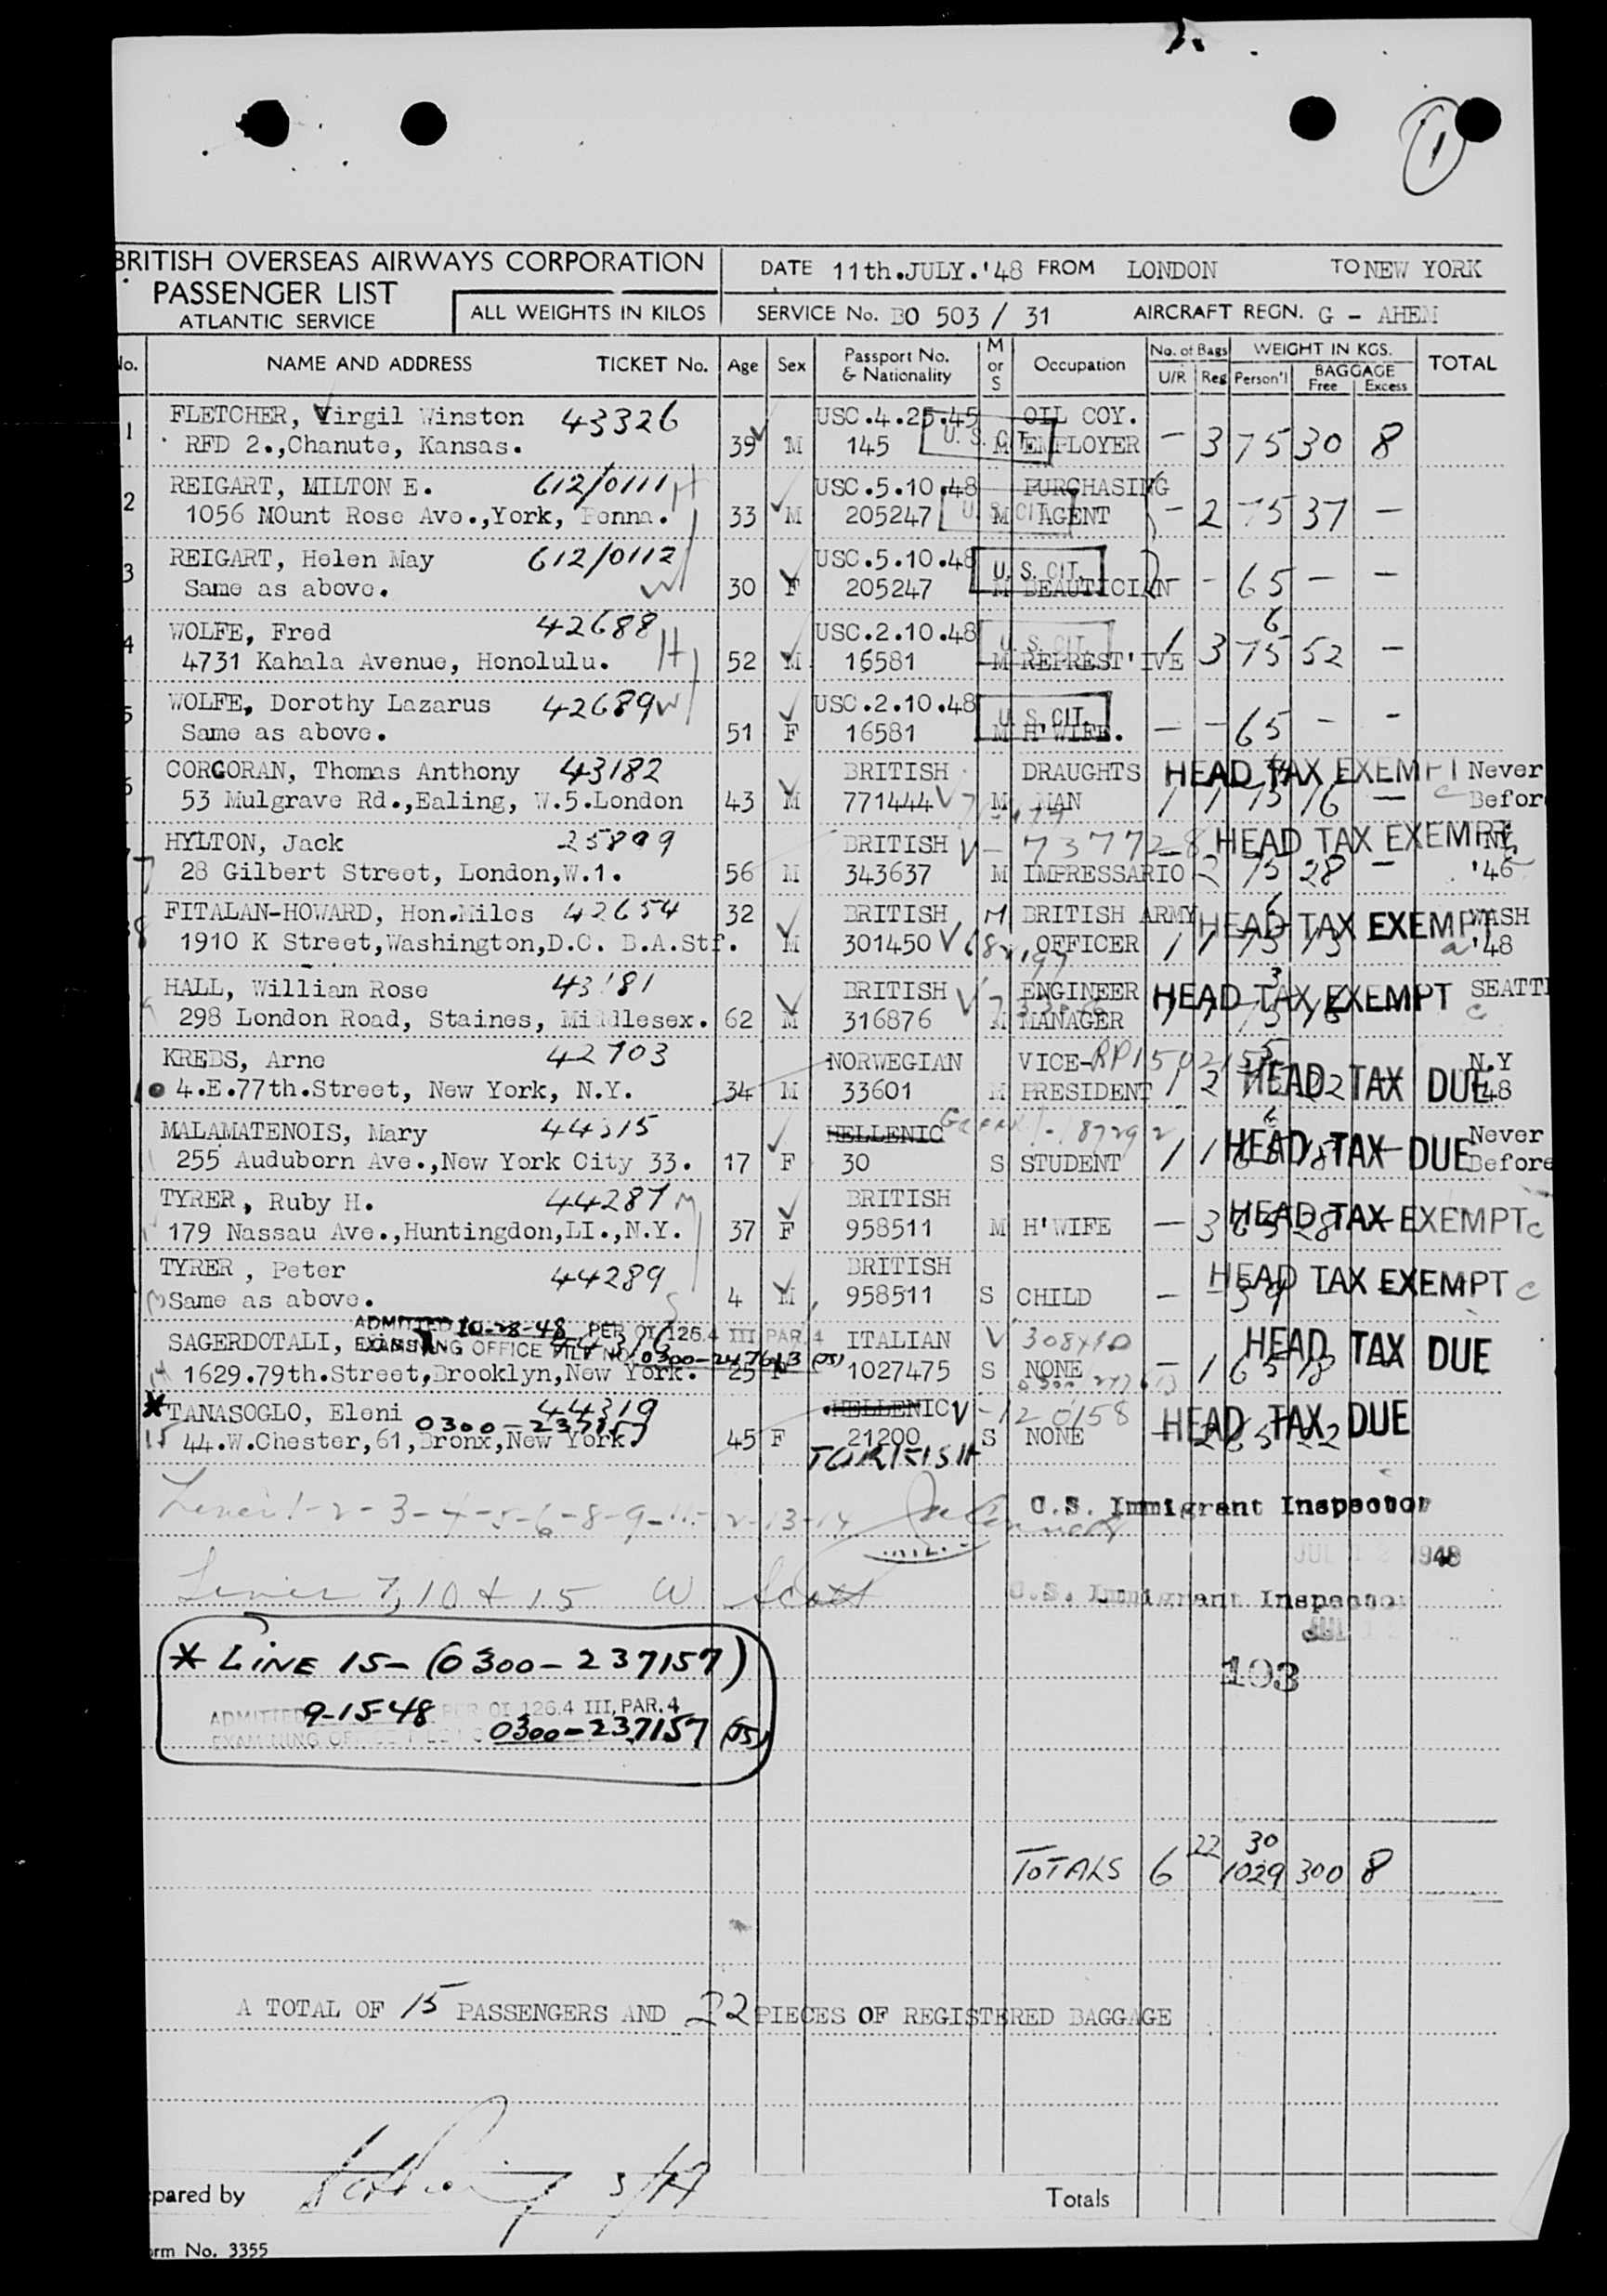 1
BRITISH OVERSEAS AIRWAYS CORPORATION
PASSENGER LIST
ATLANTIC SERVICE
ALL WEIGHTS IN KILOS
DATE 11th.JULY.'48 FROM LONDON TO NEW YORK
SERVICE No. BO 503 / 31 AIRCRAFT REGN. G - AHEM
No. NAME AND ADDRESS TICKET No. Age Sex Passport No. & Nationality M or S Occupation No. of Bags U/R Reg WEIGHT IN KGS. Person'l BAGGAGE Free Excess TOTAL
1 FLETCHER, Virgil Winston 43326 USC.4.25.45 OIL COY.
RFD 2.,Chanute, Kansas. 39 M 145 U. S. CIT. M EMPLOYER - 3 75 30 8
2 REIGART, MILTON E. 612/0111 H USC.5.10.48 PURCHASING
1056 MOunt Rose Ave.,York, Penna. 33 M 205247 U. S. CIT. M AGENT - 2 75 37 -
3 REIGART, Helen May 612/0112 USC.5.10.48
Same as above. W 30 F 205247 U. S. CIT. M BEAUTICIAN - - 65 - -
4 WOLFE, Fred 42688 USC.2.10.48 6
4731 Kahala Avenue, Honolulu. H 52 M 16581 U. S. CIT. M REPREST'IVE 1 3 75 52 -
5 WOLFE, Dorothy Lazarus 42689 W USC.2.10.48
Same as above. 51 F 16581 U. S. CIT. M H'WIFE. - - 65 - -
6 CORCORAN, Thomas Anthony 43182 BRITISH DRAUGHTS HEAD TAX EXEMPT Never
53 Mulgrave Rd.,Ealing, W.5.London 43 M 771444 M MAN 1 1 75 16 - c Before
7 HYLTON, Jack 25809 BRITISH V-737728 HEAD TAX EXEMPT NY
28 Gilbert Street, London,W.1. 56 M 343637 M IMPRESSARIO 2 75 28 - '46
8 FITALAN-HOWARD, Hon.Miles 42654 32 BRITISH M BRITISH ARMY 6 HEAD TAX EXEMPT WASH
1910 K Street,Washington,D.C. B.A.Stf. M 301450 OFFICER 1 1 75 13 a '48
9 HALL, William Rose 43181 BRITISH ENGINEER 3 HEAD TAX EXEMPT SEATTL
298 London Road, Staines, Middlesex. 62 M 316876 M MANAGER c
KREBS, Arne 42703 NORWEGIAN VICE- N.Y
10 4.E.77th.Street, New York, N.Y. 34 M 33601 M PRESIDENT 1 2 HEAD TAX DUE 48
MALAMATENOIS, Mary 44315 HELLENIC Greek 6 HEAD TAX DUE Never
255 Auduborn Ave.,New York City 33. 17 F 30 S STUDENT 1 1 65 18 Before
TYRER, Ruby H. 44287 M BRITISH HEAD TAX EXEMPT
179 Nassau Ave.,Huntingdon,LI.,N.Y. 37 F 958511 M H'WIFE - 3 65 28 c
TYRER , Peter 44289 BRITISH HEAD TAX EXEMPT c
Same as above. S 4 M 958511 S CHILD - - 39
ADMITTED 10-28-48 PER OI 126.4 III, PAR. 4
SAGERDOTALI, ITALIAN V 308410 HEAD TAX DUE
EXAMINING OFFICE FILE NO. 0300-247613 (JS)
14 1629.79th.Street,Brooklyn,New York. 25 F 1027475 S NONE - 1 65 18
* TANASOGLO, Eleni 44319 HELLENIC V-120158 HEAD TAX DUE
0300-237157
15 44.W.Chester,61,Bronx,New York. 45 F 21200 S NONE - 2 65 22
TURKISH
Lines 1-2-3-4-5-6-8-9-11-12-13-14 U.S. Immigrant Inspector
JUL 12 1948
Lines 7, 10 & 15 W Scott U.S. Immigrant Inspector
JUL 12
* LINE 15- (0300-237157) 193
ADMITTED 9-15-48 PER OI 126.4 III, PAR. 4
EXAMINING OFFICE FILE NO 0300-237157 (JS)
22 30
TOTALS 6 1029 300 8
A TOTAL OF 15 PASSENGERS AND 22 PIECES OF REGISTERED BAGGAGE
pared by Totals
orm No. 3355